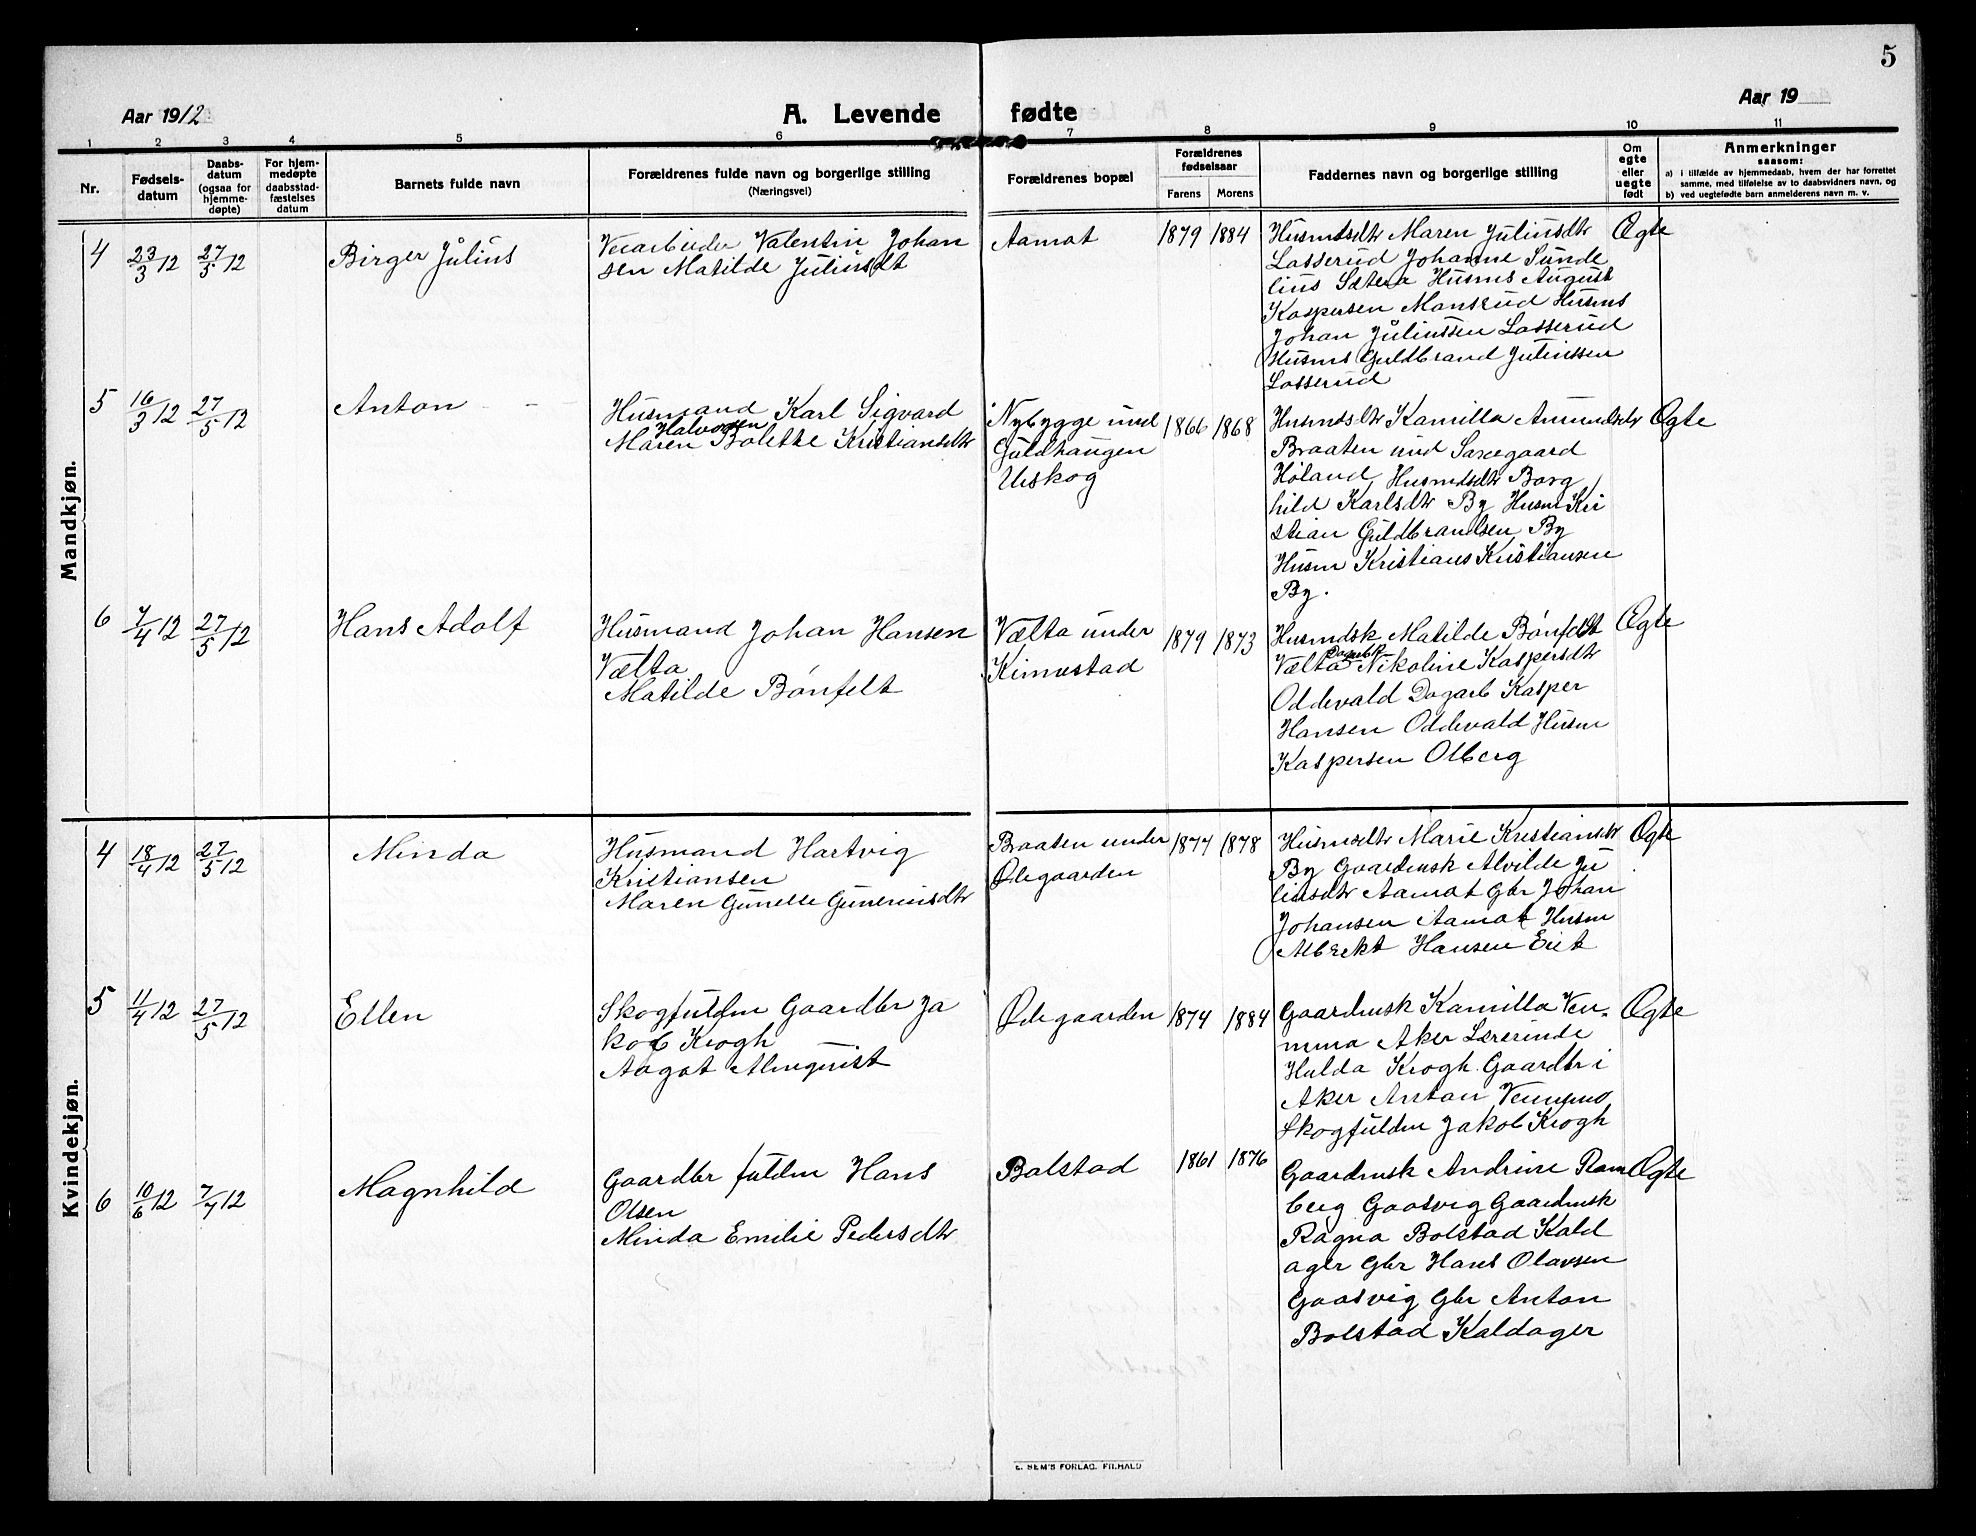 5
Aar 1912
A. Levende fødte
Aar 19
1 2 3 4 5 6 7 8 9 10 11
Nr.
Fødsels-
datum
Daabs-
datum
(ogsaa for
hjemme-
døpte)
For hjem-
medøpte
daabsstad-
fæstelses
datum
Barnets fulde navn
Forældrenes fulde navn og borgerlige stilling
(Næringsvei)
Forældrenes bopæl
Forældrenes
fødselsaar
Farens Morens
Faddernes navn og borgerlige stilling
Om
egte
eller
uegte
født
Anmerkninger
saasom:
a) i tilfælde av hjemmedaab, hvem der har forrettet
samme, med tilføielse av to daabsvidners navn, og
b) ved uegtefødte barn anmelderens navn m. v.
Mandkjøn.
4 23/3 12 27/5 12 Birger Julius
Valentin Johan
sen Matilde Juliusdt
Aamot 1879 1884
Husmdsdtr Maren Juliusdtr
Losserud Johanne Sunde
lius Sætera Husms August
Kaspersen Manskud Husms
Johan Juliussen Losserud
Husms Guldbrand Juliussen
Losserud
Ægte
5 16/3 12 27/5 12 Anton
Husmand Karl Sigvard
Halvorsen
Maren Bolette Kristiansdtr
Nybygge und
Guldhaugen
Urskog
1866 1868
Husmdsdtr Kamilla Amundsdtr
Braaten und
Høland Husmdsdtr Borg
hild Karlsdtr By Husm Kri
stian Guldbrandsen By
Husm Kristians Kristiansen
By.
Ægte
6 7/4 12 27/5 12 Hans Adolf
Husmand Johan Hansen
Vælta
Matilde Bönfelt
Vælta under
Kinnestad
1879 1873
Husmdsk Matilde Bønfeldt
Vælta Nikoline Kaspersdtr
Oddevald Dagarb Kasper
Hansen Oddevald Husm
Kaspersen Olberg
Ægte
Kvindekjøn.
4 18/4 12 27/5 12 Minda
Husmand Hartvig
Kristiansen
Maren Gunelle Guneriusdtr
Braaten under
Ødegaarden
1877 1878
Husmsdtr Marie Kristiansdtr
By Gaardmsk Alvilde Ju
liusdtr Aamot Gbr Johan
Johansen Aamot Husm
Albrekt Hansen Eiet
Ægte
5 11/4 12 27/5 12 Ellen
Skogfuldm Gaardbr Ja
kob Krogh
Aagot Almquist
Ødegaarden 1874 1884
Gaardmsk Kamilla Ven-
mma Aker Lærerinde
Hulda Krogh Gaardbr i
Aker Anton Vennmo
Skogfuldm Jakob Krogh
Ægte
6 10/6 12 7/7 12 Magnhild
Gaardbr fuldm Hans
Olsen
Minda Emilie Pedersdtr
Bolstad 1861 1876
Gaardmsk Andrine Ram
berg Gaasvig Gaardmsk
Ragna Bolstad Kald
ager Gbr Hans Olavsen
Gaasvig Gbr Anton
Bolstad Kaldager
Ægte
E. SEM'S FORLAG. FR.HALD